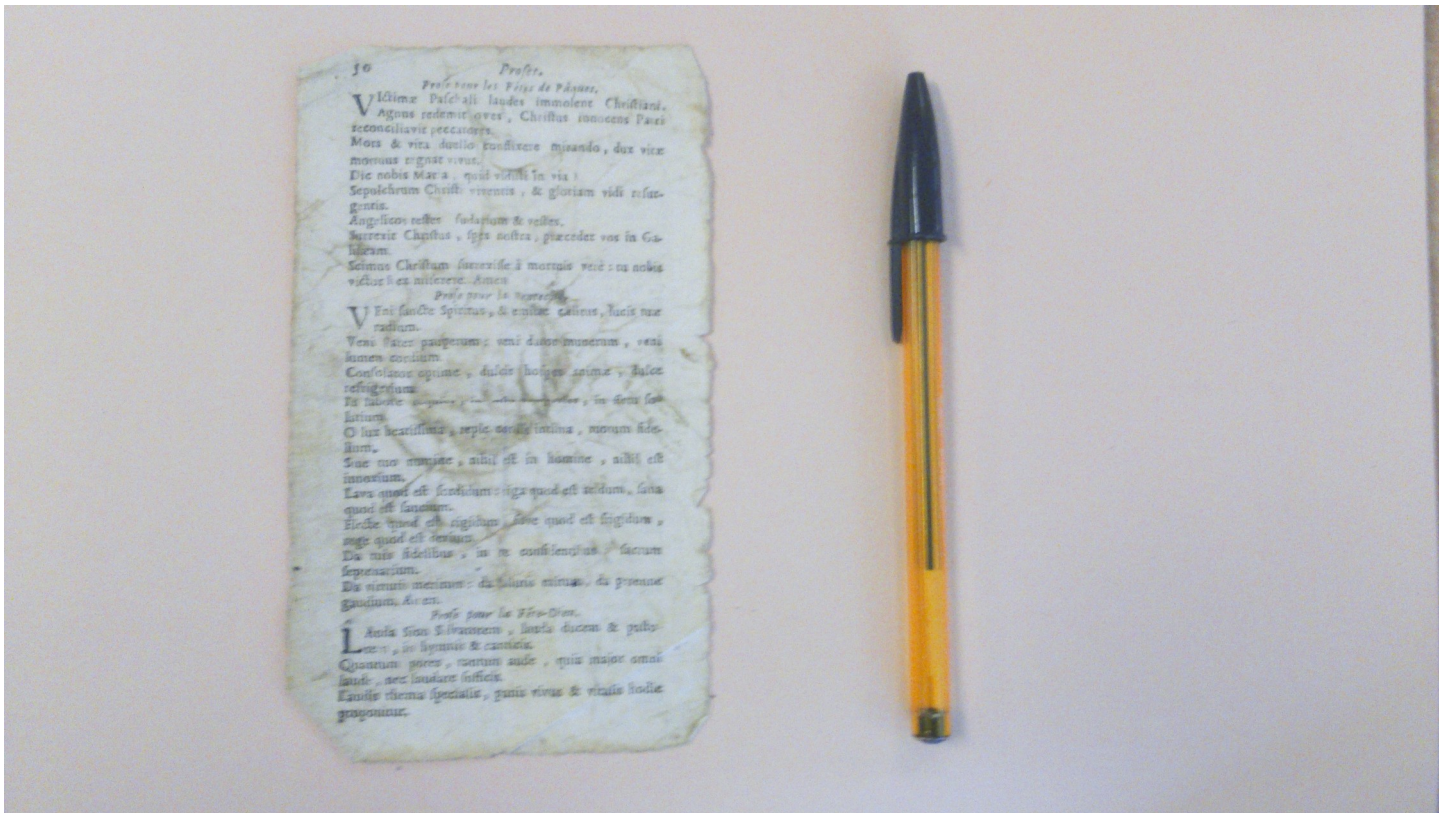 50 Proses.
Prose pour les Fêtes de Pâques.
VIctimæ Paschali laudes immolent Chriſtiani.
Agnus redemit oves, Chriſtus innocens Patri
reconciliavit peccatores.
Mors & vita duello conflixere mirando, dux vitæ
mortuus regnat vivus.
Dic nobis Maria, quid vidiſti in via?
Sepulchrum Chriſti viventis, & gloriam vidi reſur-
gentis.
Angelicos teſtes ſudarium & veſtes.
Surrexit Chriſtus, ſpes noſtra, præcedet vos in Ga-
lilæam.
Scimus Chriſtum ſurrexiſſe à mortuis verè: tu nobis
victor Rex miſerere. Amen
Proſe pour la
VEni ſancte Spiritus, & emitte cælitus, lucis tuæ
radium.
Veni Pater pauperum: veni dator munerum, veni
lumen cordium.
Conſolator optime, dulcis hoſpes animæ, dulce
refrigerium.
In labore requies, in æſtu, in fletu ſo-
latium.
O lux beatiſſima, reple cordis intima, tuorum fide-
lium.
Sine tuo numine, nihil eſt in homine, nihil eſt
innoxium.
Lava quod eſt ſordidum: riga quod eſt aridum, ſana
quod eſt ſaucium.
Flecte quod eſt rigidum, fove quod eſt frigidum,
rege quod eſt devium.
Da tuis fidelibus, in te confidentibus ſacrum
ſeptenarium.
Da virtutis meritum: da ſalutis exitum, da perenne
gaudium. Amen.
Proſe pour la Fête-Dieu.
LAuda Sion Salvatorem, lauda ducem & paſto-
rem, in hymnis & canticis.
Quantum potes, tantum aude, quia major omni
laude, nec laudare ſufficis.
Laudis thema ſpecialis, panis vivus & vitalis hodie
proponitur.